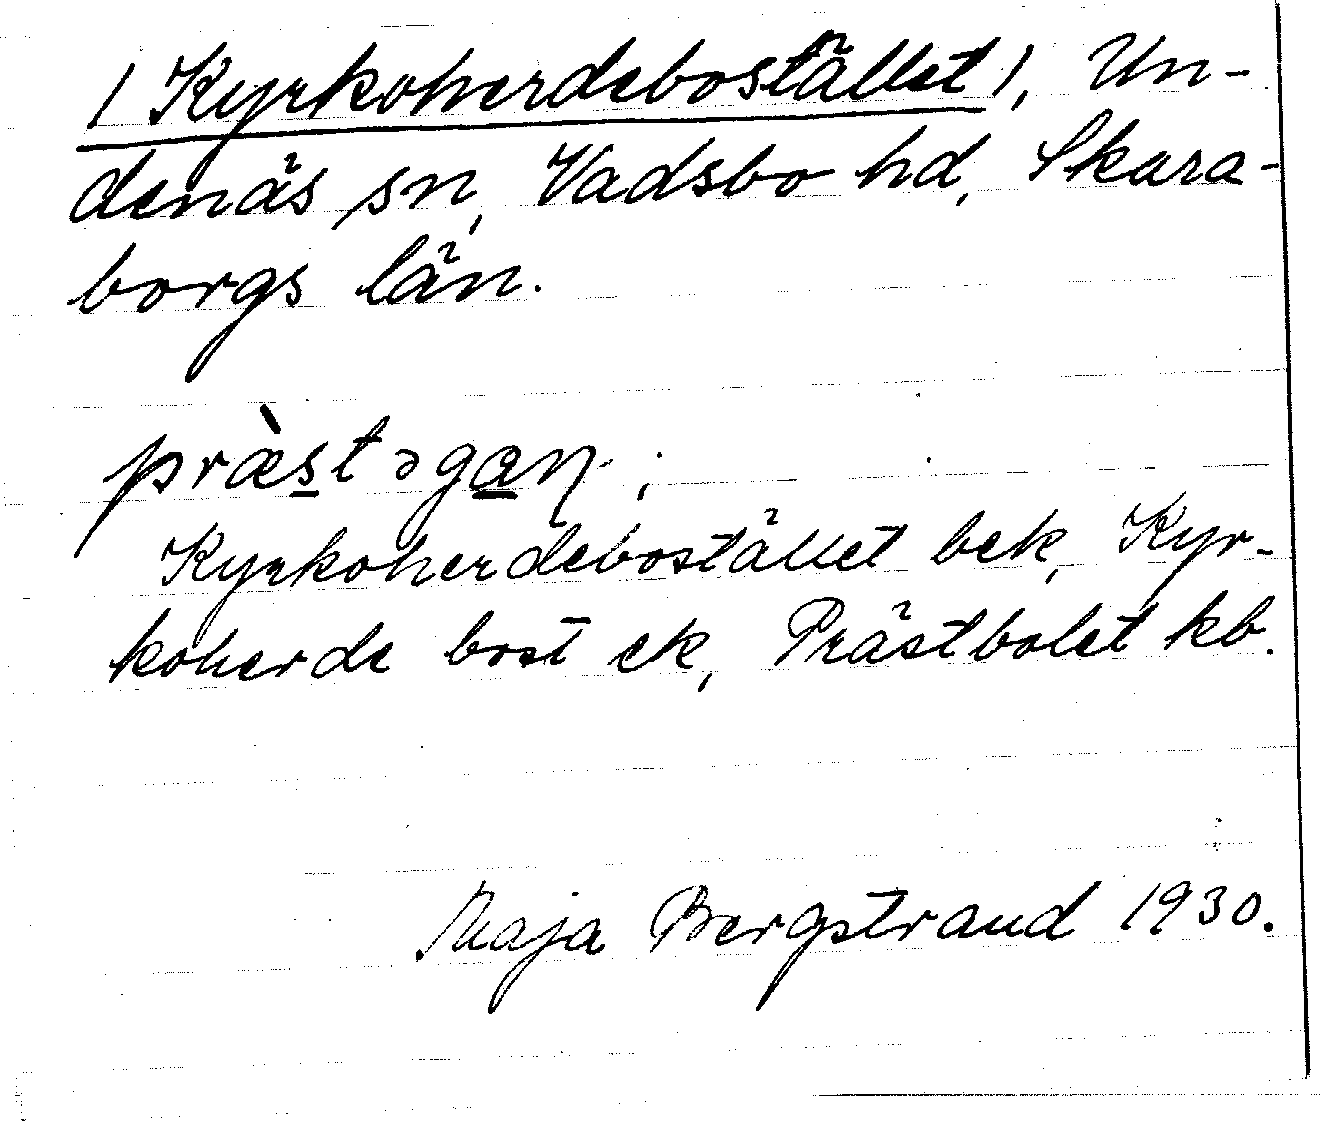 /Kyrkoherdebostället/, Un-
denäs sn, Vadsbo hd, Skara-
borgs län.
præ̀s̲təga̲ɳ ;
Kyrkoherdebostället bek, Kyr-
koherde bost ek, Prästbolet kb.
Maja Bergstrand 1930.